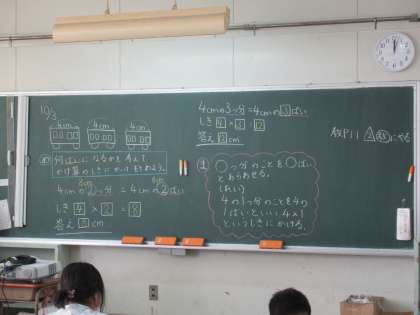 10/3
4cm 4cm 4cm
め 何ばいになるかを考えて
かけ算のしきにかけるをもとめよう。
8cm 8cm
4cmの2つ分 = 4cmの2ばい
しき 4 × 2 = 8
答え 8 cm
4cmの3つ分 = 4cmの3ばい
しき 4 × 3 = 12
答え 12 cm
ま
○つ分のことを○ばい
とあらわせる。
(れい)
4の1つ分のことを4の
1ばいといい 4×1
というしきにかける。
P11